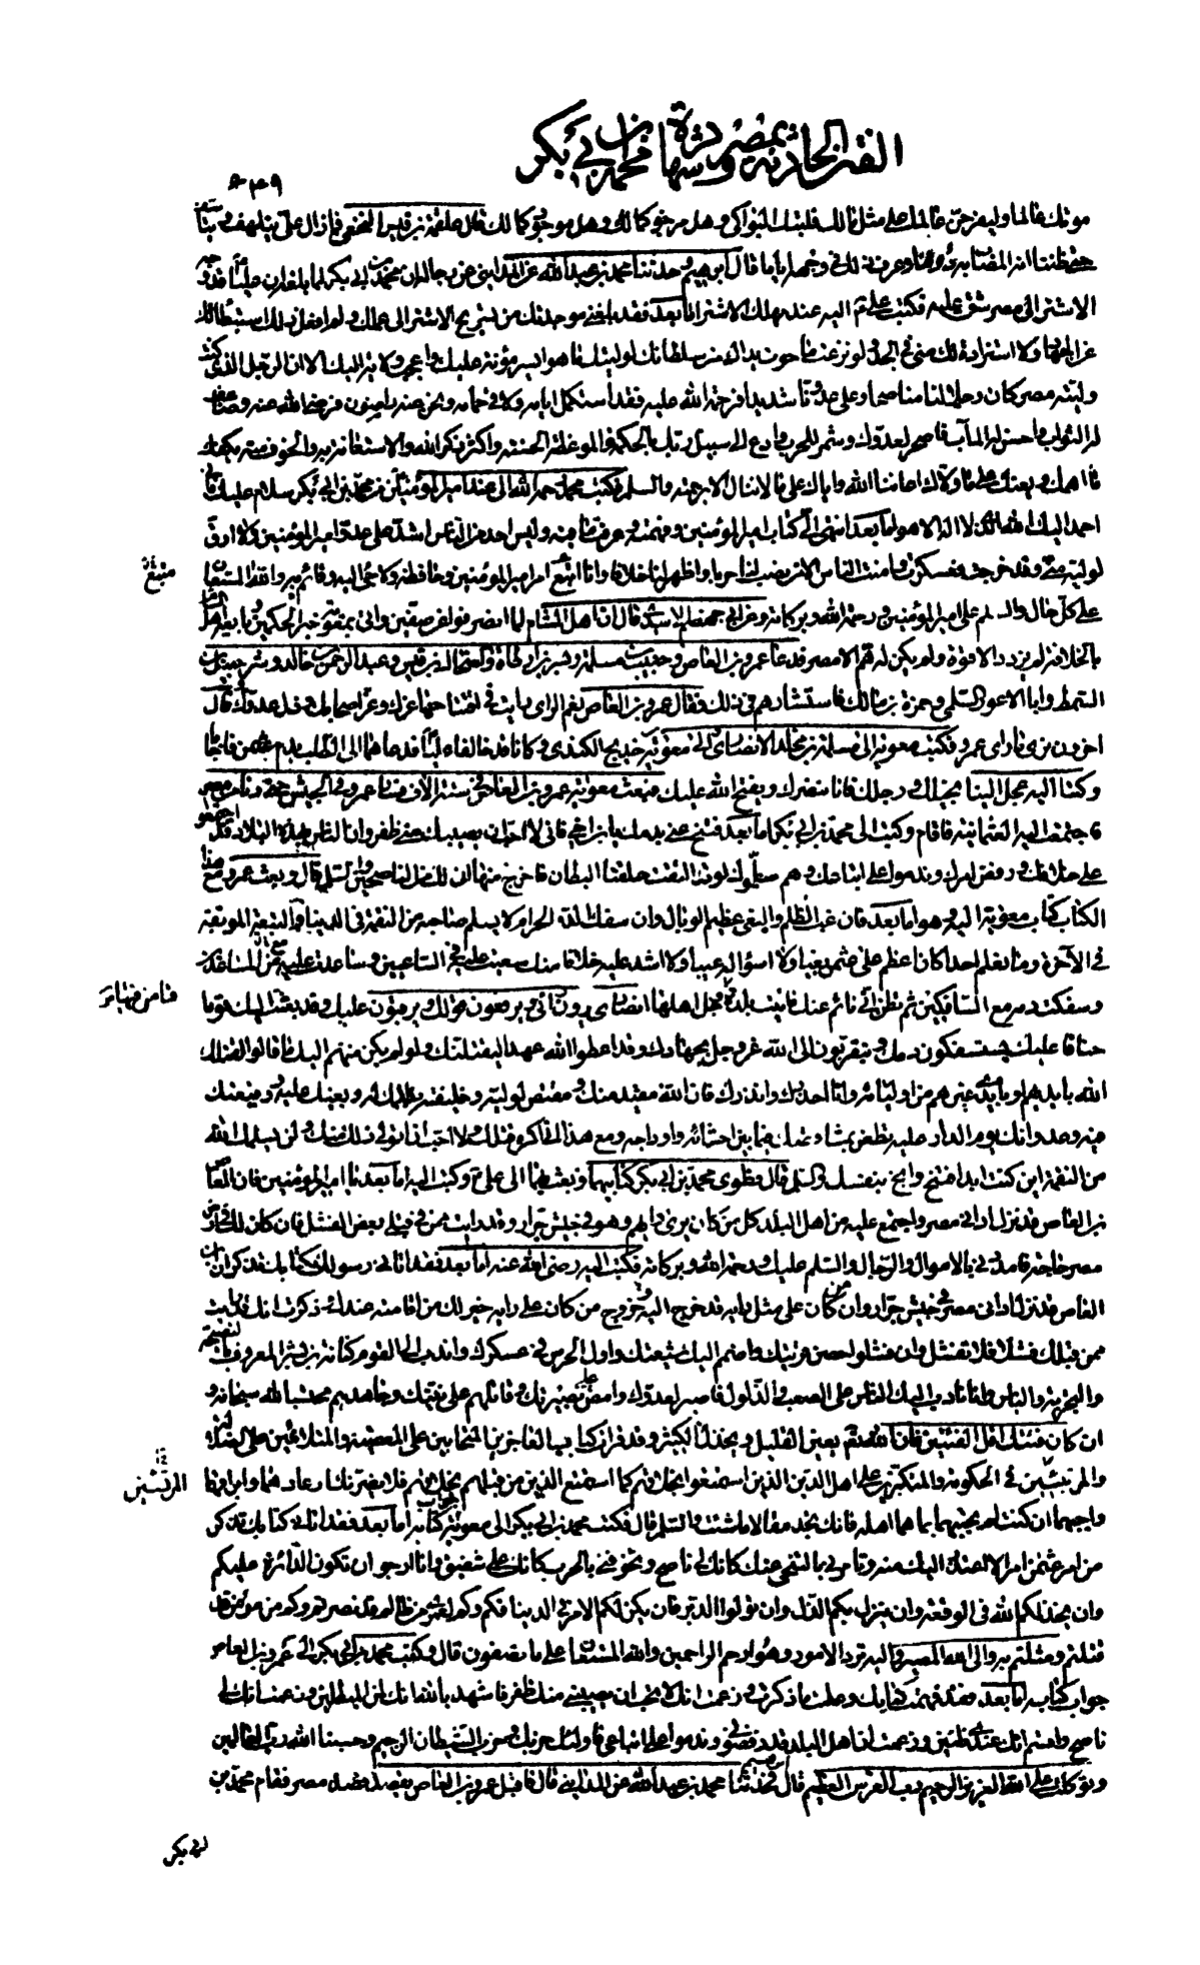 الفتن الحادثة بمصر وشهادة محمد بن أبي بكر
موتك عالما وليفرحن عالما على مثل مالك فلتبك البواكي وهل مرجو كمالك وهل موجود كمالك فقال علقمة بن قيس النخعي فما زال علي يتلهف و
حتى ظننا انه المصاب به دوننا وعرف ذلك في وجهه اياما قال ابرهيم وحدثنا محمد بن عبد الله عن المدايني عن رجاله ان محمد بن ابي بكر لما بلغه ان عليا قد وجه
الاشتر الى مصر شق عليه فكتب علي ع اليه عند مهلك الاشتر اما بعد فقد بلغني موجدتك من تسريح الاشتر الى عملك ولم افعل ذلك استبطاء لك
عن الجهاد ولا استزادة لك مني في الجد ولو نزعت ما حوت يداك من سلطانك لوليتك ما هو ايسر مؤنة عليك واعجب ولاية اليك الا ان الرجل الذي كنت
وليته مصر كان رجلا لنا مناصحا وعلى عدونا شديدا فرحمة الله عليه فقد استكمل ايامه ولاقى حمامه ونحن عنه راضون فرضي الله عنه وضاعف
له الثواب واحسن له المآب فاصحر لعدوك وشمر للحرب وادع الى سبيل ربك بالحكمة والموعظة الحسنة واكثر ذكر الله والاستعانة به والخوف منه يكفك
ما اهمك ويعنك على ما ولاك اعاننا الله واياك على ما لا ينال الا برحمته والسلم فكتب محمد رحمه الله الى عبد الله امير المؤمنين من محمد بن ابي بكر سلام عليك فاني
احمد اليك الله الذي لا اله الا هو اما بعد انتهى الي كتاب امير المؤمنين وفهمته وعرفت ما فيه وليس احد من الناس اشد على عدو امير المؤمنين ولا ارق
لوليه مني وقد خرجت فعسكرت وامنت الناس الا من نصب لنا حربا واظهر لنا خلافا وانا اتبع امر امير المؤمنين وحافظه ولاجئ اليه وقائم به والله المستعان
متبع
على كل حال والسلم على امير المؤمنين ورحمة الله وبركاته وعن ابي جهضم الاسدي قال ان اهل الشام لما انصرفوا عن صفين واتى بمعوية خبر الحكمين وبايعه اهل
بالخلافة لم يزدد الا قوة ولم يكن له هم الا مصر فدعا عمرو بن العاص وحبيب بن مسلمة وبسر بن ارطاة والضحاك بن قيس وعبد الرحمن بن خالد وشرحبيل بن
السمط وابا الاعور السلمي وحمزة بن مالك فاستشارهم في ذلك فقال عمرو بن العاص نعم الراي رايت في افتتاحها عزك وعز اصحابك وذل عدوك قال
اخرون نرى ما راى عمرو فكتب معوية الى مسلمة بن مخلد الانصاري والى معوية بن خديج الكندي وكانا قد خالفا عليا فدعاهما الى الطلب بدم عثمن فاجابا
وكتبا اليه عجل الينا بخيلك ورجلك فانا ننصرك ويفتح الله عليك فبعث معوية عمرو بن العاص في ستة الاف فسار عمرو في الجيش حتى دنا من مصر
فاجتمعت اليه العثمانية فاقام وكتب الى محمد بن ابي بكر اما بعد فتنح عني بدمك يا ابن اخي فاني لا احب ان يصيبك مني ظفر وان الناس بهذه البلاد قد اجمعوا
على خلافك ورفض امرك وندموا على اتباعك وهم مسلموك لو قد التقت حلقتا البطان فاخرج منها اني لك من الناصحين والسلم قال وبعث عمرو مع هذا
الكتاب كتاب معوية اليه وهو اما بعد فان غب الظلم والبغي عظيم الوبال وان سفك الدم الحرام لا يسلم صاحبه من النقمة في الدنيا والتبعة الموبقة
في الآخرة وما نعلم احدا كان اعظم على عثمن بغيا ولا اسوأ له عيبا ولا اشد عليه خلافا منك سعيت عليه في الساعين وساعدت عليه مع المساعدين
وسفكت دمه مع السافكين ثم تظن اني نائم عنك فاتيت بلدة فتامن فيها وجل اهلها انصاري يرون رأيي ويرفعون قولك ويرقبون عليك وقد بعثت اليك قوما
فتامن فيها
حناقا عليك يستسفكون دمك ويتقربون الى الله عز وجل بجهادك وقد اعطوا الله عهدا ليقتلنك ولو لم يكن منهم اليك ما قالوا لقتلك
الله بايديهم او بايدي غيرهم من اوليائه وانا احذرك وانذرك فان الله مقيد منك ومقتص لوليه وخليفته بظلمك له وبغيك عليه ووقيعتك
فيه وعدوانك يوم الدار عليه تطعن بمشاقصك فيما بين احشائه واوداجه ومع هذا فاني اكره قتلك ولا احب ان اتولى ذلك منك ولن يسلمك الله
من النقمة اين كنت ابدا فتنح وانج بنفسك والسلم قال فطوى محمد بن ابي بكر كتابيهما وبعث بهما الى علي ع وكتب اليه اما بعد يا امير المؤمنين فان العاصي
بن العاص قد نزل اداني مصر واجتمع عليه من اهل البلد كل من كان يرى رايهم وهو في جيش جرار وقد رايت ممن قبلي بعض الفشل فان كان لك في ارض
مصر حاجة فامددني بالاموال والرجال والسلم عليك ورحمة الله وبركاته فكتب اليه رضي الله عنه اما بعد فقد اتاني رسولك بكتابك تذكر ان ابن
العاص قد نزل اداني مصر في جيش جرار وان من كان على مثل رايه قد خرج اليه وخروج من كان على رايه خير لك من اقامته عندك وذكرت انك قد رايت
ممن قبلك فشلا فلا تفشل وان فشلوا حصن قريتك واضمم اليك شيعتك واول الحرس في عسكرك واندب الى القوم كنانة بن بشر المعروف بالنصيحة
والتجربة والباس وانا نادب اليك الناس على الصعب والذلول فاصبر لعدوك وامض على بصيرتك وقاتلهم على نيتك وجاهدهم محتسبا لله سبحانه و
ان كان فئتك اقل الفئتين فان الله تعالى يعين القليل ويخذل الكثير وقد قرات كتابي الفاجرين المتحابين على المعصية والمتلائمين على الضلالة
والمرتشين في الحكومة والمتكبرين على اهل الدين الذين استمتعوا بخلاقهم كما استمتع الذين من قبلهم بخلاقهم فلا يضرنك ارعادهما وابراقهما
المرتشين
واجبهما ان كنت لم تجبهما بما هما اهله فانك تجد مقالا ما شئت والسلم قال فكتب محمد بن ابي بكر الى معوية جواب كتابه اما بعد فقد اتاني كتابك تذكر
من امر عثمن امرا لا اعتذر اليك منه وتامرني بالتنحي عنك كانك لي ناصح وتخوفني بالحرب كانك علي شفيق وانا ارجو ان تكون الدائرة عليكم
وان يخذلكم الله في الوقعة وان ينزل بكم الذل وان تولوا الدبر فان يكن لكم الامر في الدنيا فكم وكم لعمري من ظالم قد نصرتم وكم من مؤمن قد
قتلتم ومثلتم به والى الله المصير واليه ترد الامور وهو ارحم الراحمين والله المستعان على ما تصفون قال وكتب محمد بن ابي بكر الى عمرو بن العاص
جواب كتابه اما بعد فقد فهمت كتابك وعلمت ما ذكرت وزعمت انك لا تحب ان يصيبني منك ظفر فاشهد بالله انك لمن المبطلين وزعمت انك لي
ناصح واقسم انك عندي ظنين وزعمت ان اهل البلد قد رفضوني وندموا على اتباعي فاولئك حزبك وحزب الشيطان الرجيم وحسبنا الله رب العالمين
وتوكلت على الله العزيز الرحيم رب العرش العظيم قال ابرهيم فحدثنا محمد بن عبد الله عن المدايني قال فاقبل عمرو بن العاص يقصد قصد مصر فقام محمد بن
ابي بكر